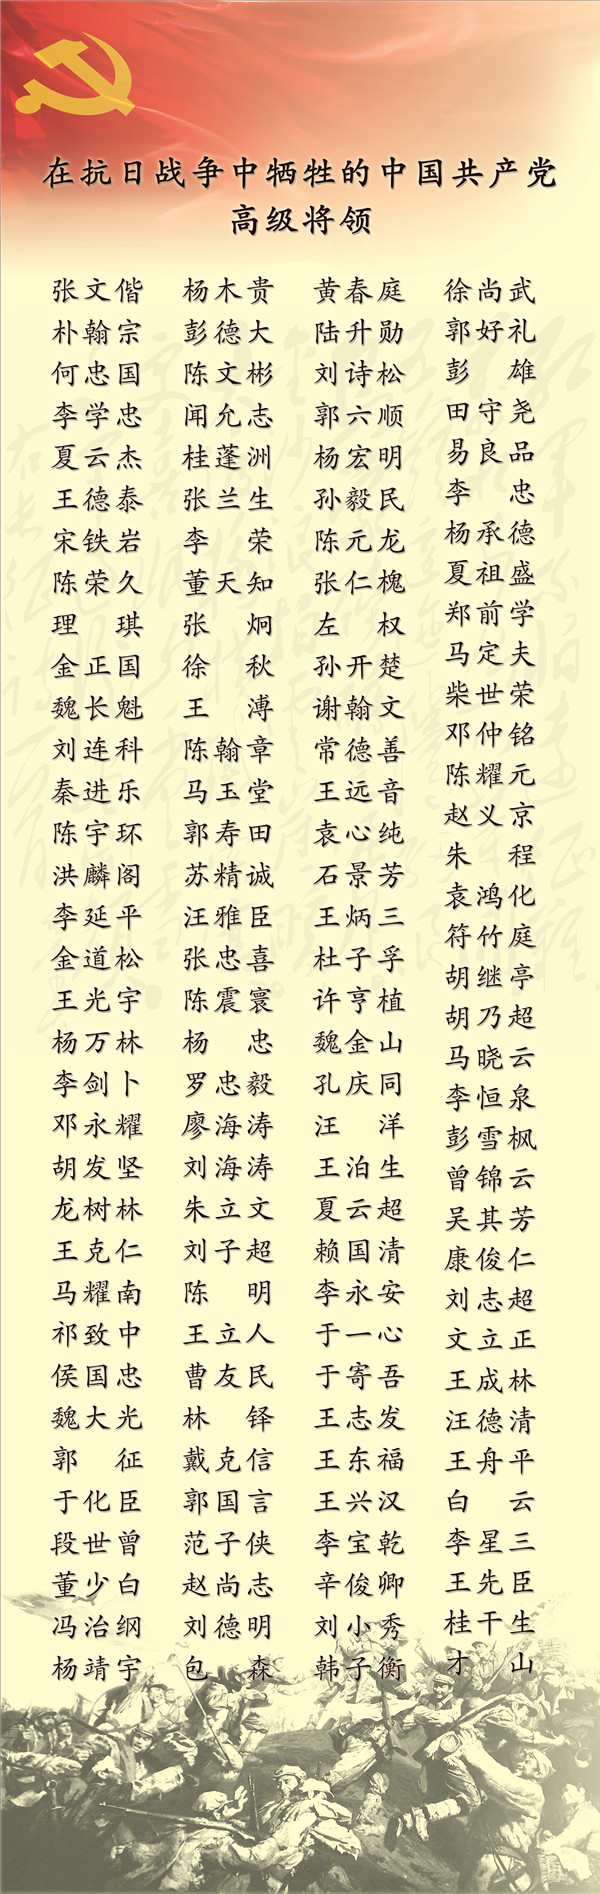 在抗日战争中牺牲的中国共产党
高级将领
张文偕 杨木贵 黄春庭 徐尚武
朴翰宗 彭德大 陆升勋 郭好礼
何忠国 陈文彬 刘诗松 彭雄
李学忠 闻允志 郭六顺 田守尧
夏云杰 桂蓬洲 杨宏明 易良品
王德泰 张兰生 孙毅民 李忠
宋铁岩 李荣 陈元龙 杨承德
陈荣久 董天知 张仁槐 夏祖盛
理琪 张炯 左权 郑前学
金正国 徐秋 孙开楚 马定夫
魏长魁 王溥 谢翰文 柴世荣
刘连科 陈翰章 常德善 邓仲铭
秦进乐 马玉堂 王远音 陈耀元
陈宇环 郭寿田 袁心纯 赵义京
洪麟阁 苏精诚 石景芳 朱程
李延平 汪雅臣 王炳三 袁鸿化
金道松 张忠喜 杜子孚 符竹庭
王光宇 陈震寰 许亨植 胡继亭
杨万林 杨忠 魏金山 胡乃超
李剑卜 罗忠毅 孔庆同 马晓云
邓永耀 廖海涛 汪洋 李恒泉
胡发坚 刘海涛 王泊生 彭雪枫
龙树林 朱立文 夏云超 曾锦云
王克仁 刘子超 赖国清 吴其芳
马耀南 陈明 李永安 康俊仁
祁致中 王立人 于一心 刘志超
侯国忠 曹友民 于寄吾 文立正
魏大光 林铎 王志发 王成林
郭征 戴克信 王东福 汪德清
于化臣 郭国言 王兴汉 王舟平
段世曾 范子侠 李宝乾 白云
董少白 赵尚志 辛俊卿 李星三
冯治纲 刘德明 刘小秀 王先臣
杨靖宇 包森 韩子衡 桂干生
才山